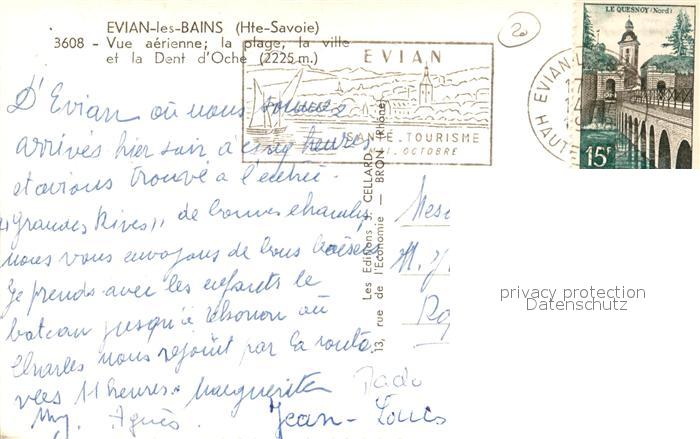 EVIAN-les-BAINS (Hte-Savoie)
3608 - Vue aérienne; la plage, la ville
et la Dent d'Oche (2225 m.)
20
EVIAN
SANTÉ. TOURISME
OCTOBRE
EVIAN-L
17
14
HAUTE
LE QUESNOY (Nord)
15F
D'Evian où nous sommes
arrivés hier soir à cinq heures
et avions trouvé à l'
"Grandes Rives", de bonnes chambres
nous vous envoyons de bons baisers
Je prends avec les enfants le
bateau jusqu'à Thonon où
Charles nous rejoint par la route
vers 11 heures. Marguerite
Agnès. Jean-Louis
Les Editions J. CELLARD
13, rue de l'Economie — BRON (Rhône)
privacy protection
Datenschutz